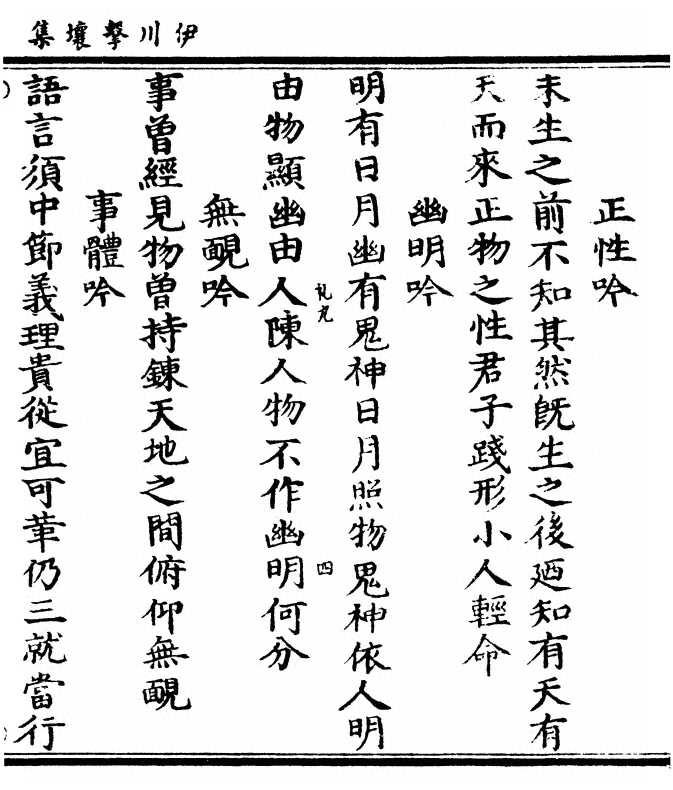 伊川擊壤集
正性吟
未生之前不知其然既生之後廼知有天有
天而來正物之性君子踐形小人輕命
幽明吟
明有日月幽有鬼神日月照物鬼神依人明
由物顯幽由人陳人物不作幽明何分
四
無靦吟
事曾經見物曾持鍊天地之間俯仰無靦
事體吟
語言須中節義理貴從宜可革仍三就當行